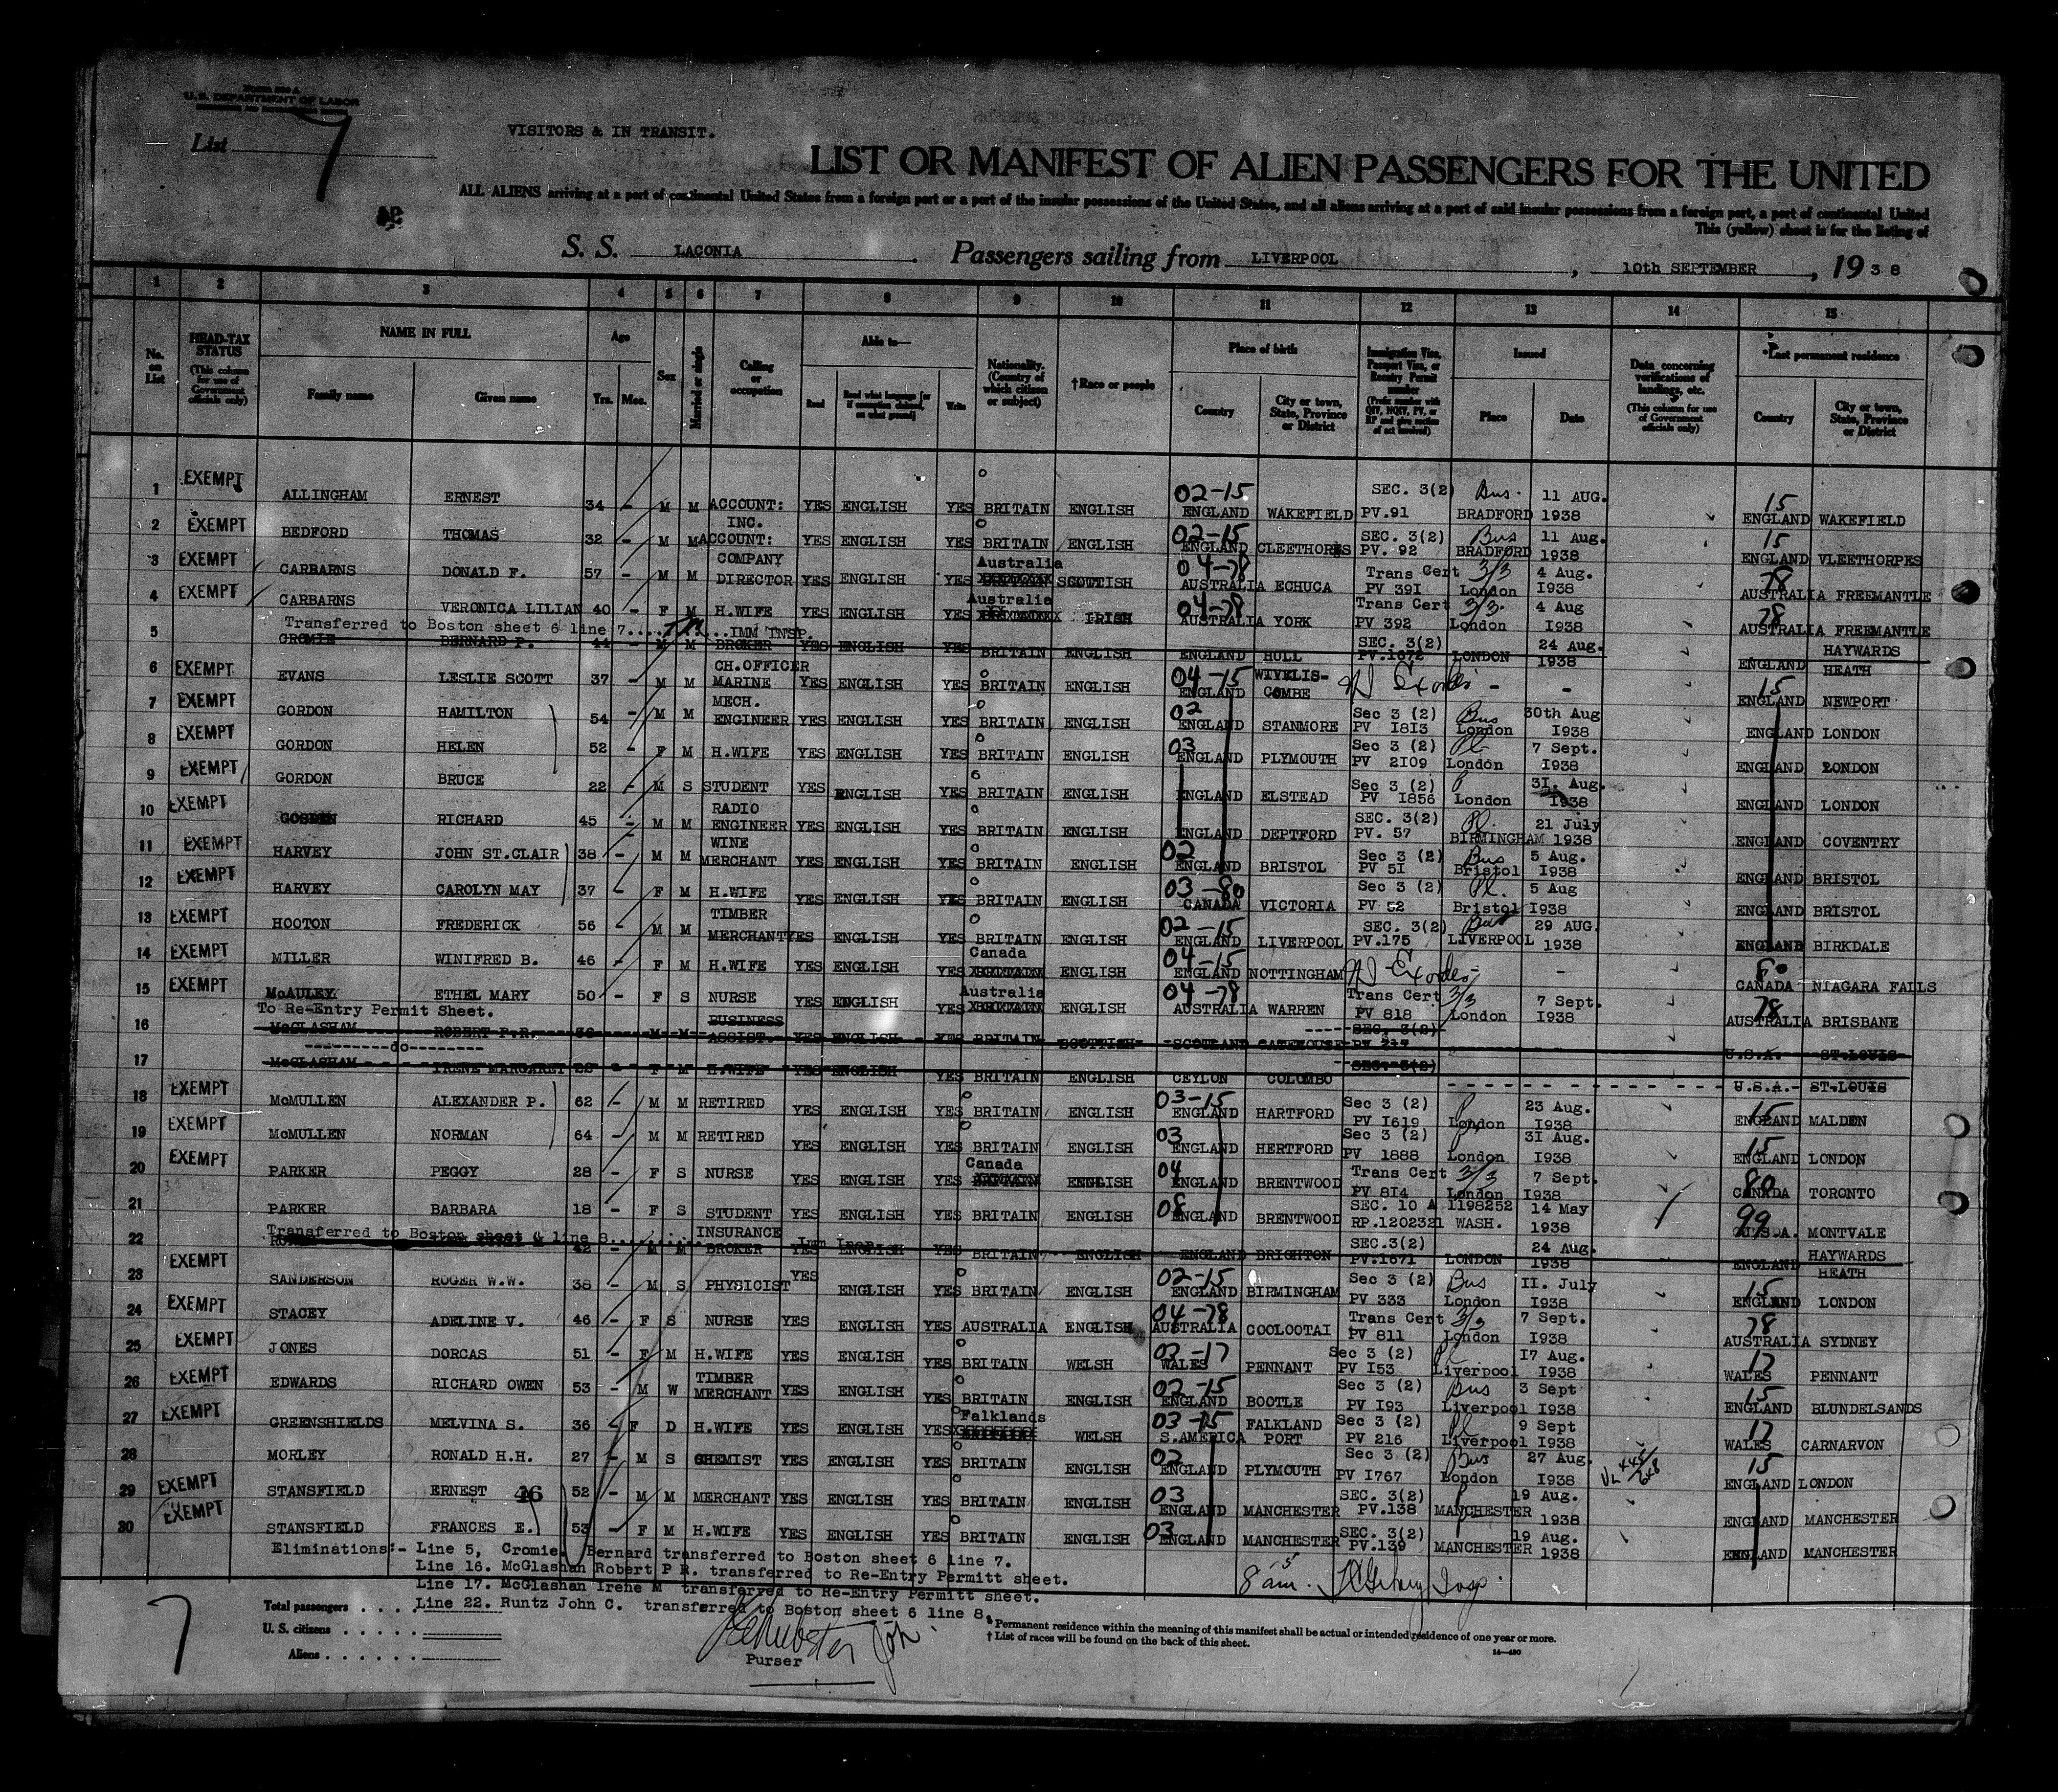 U.S. DEPARTMENT OF LABOR
List 7
VISITORS & IN TRANSIT.
LIST OR MANIFEST OF ALIEN PASSENGERS FOR THE UNITED
ALL ALIENS arriving at a port of continental United States from a foreign port or a port of the insular possessions of the United States, and all aliens arriving at a port of said insular possessions from a foreign port, a port of continental United
This (yellow) sheet is for the listing of
S. S. LACONIA Passengers sailing from LIVERPOOL, 10th SEPTEMBER, 1938
1 2 3 4 5 6 7 8 9 10 11 12 13 14 15
No. on List
HEAD-TAX STATUS (This column for use of Government officials only)
NAME IN FULL Family name Given name
Age Yrs. Mos.
Sex
Married or single
Calling or occupation
Able to— Read Read what language [or if exemption claimed, on what ground] Write
Nationality. (Country of which citizen or subject)
†Race or people
Place of birth Country City or town, State, Province or District
Immigration Visa, Passport Visa, or Reentry Permit number (Prefix number with QIV, NQIV, PV, or RP and give section of act involved)
Issued Place Date
Data concerning verifications of landings, etc. (This column for use of Government officials only)
*Last permanent residence Country City or town, State, Province or District
1 EXEMPT ALLINGHAM ERNEST 34 - M M ACCOUNT: YES ENGLISH YES BRITAIN ENGLISH 02-15 ENGLAND WAKEFIELD SEC. 3(2) PV.91 Bus. BRADFORD 11 AUG. 1938 15 ENGLAND WAKEFIELD
2 EXEMPT BEDFORD THOMAS 32 - M M INC. ACCOUNT: YES ENGLISH YES BRITAIN ENGLISH 02-15 ENGLAND CLEETHORPES SEC. 3(2) PV. 92 Bus BRADFORD 11 Aug. 1938 15 ENGLAND VLEETHORPES
3 EXEMPT CARBARNS DONALD F. 57 - M M COMPANY DIRECTOR YES ENGLISH YES Australia SCOTTISH 04-78 AUSTRALIA ECHUCA Trans Cert 3/3 PV 39I London 4 Aug. I938 78 AUSTRALIA FREEMANTLE
4 EXEMPT CARBARNS VERONICA LILIAN 40 - F M H.WIFE YES ENGLISH YES Australia IRISH 04-78 AUSTRALIA YORK Trans Cert 3/3. PV 392 London 4 Aug I938 78 AUSTRALIA FREEMANTLE
Transferred to Boston sheet 6 line 7........IMM INSP.
5 CROMIE BERNARD P. 44 - M M BROKER YES ENGLISH YES BRITAIN ENGLISH ENGLAND HULL SEC. 3(2) PV.1672 LONDON 24 Aug. 1938 ENGLAND HAYWARDS HEATH
6 EXEMPT EVANS LESLIE SCOTT 37 - M M CH.OFFICER MARINE YES ENGLISH YES BRITAIN ENGLISH 04-15 ENGLAND WIVELIS-COMBE - - 15 ENGLAND NEWPORT
7 EXEMPT GORDON HAMILTON 54 - M M MECH. ENGINEER YES ENGLISH YES BRITAIN ENGLISH 02 ENGLAND STANMORE Sec 3 (2) PV I8I3 Bus London 30th Aug I938 ENGLAND LONDON
8 EXEMPT GORDON HELEN 52 - F M H.WIFE YES ENGLISH YES BRITAIN ENGLISH 03 ENGLAND PLYMOUTH Sec 3 (2) PV 2I09 Pl London 7 Sept. I938 ENGLAND LONDON
9 EXEMPT GORDON BRUCE 22 - M S STUDENT YES ENGLISH YES BRITAIN ENGLISH ENGLAND ELSTEAD Sec 3 (2) PV I856 P London 3I. Aug. I938 ENGLAND LONDON
10 EXEMPT GOSDEN RICHARD 45 - M M RADIO ENGINEER YES ENGLISH YES BRITAIN ENGLISH ENGLAND DEPTFORD SEC. 3(2) PV. 57 Pl. BIRMINGHAM 21 July 1938 ENGLAND COVENTRY
11 EXEMPT HARVEY JOHN ST.CLAIR 38 - M M WINE MERCHANT YES ENGLISH YES BRITAIN ENGLISH 02 ENGLAND BRISTOL Sec 3 (2) PV 5I Bus Bristol 5 Aug. I938 ENGLAND BRISTOL
12 EXEMPT HARVEY CAROLYN MAY 37 - F M H.WIFE YES ENGLISH YES BRITAIN ENGLISH 03-80 CANADA VICTORIA Sec 3 (2) PV 52 Pl. Bristol 5 Aug I938 ENGLAND BRISTOL
13 EXEMPT HOOTON FREDERICK 56 - M M TIMBER MERCHANT YES ENGLISH YES BRITAIN ENGLISH 02-15 ENGLAND LIVERPOOL SEC. 3(2) PV.175 Bus LIVERPOOL 29 AUG. 1938 ENGLAND BIRKDALE
14 EXEMPT MILLER WINIFRED B. 46 - F M H.WIFE YES ENGLISH YES Canada ENGLISH 04-15 ENGLAND NOTTINGHAM - - 80 CANADA NIAGARA FALLS
15 EXEMPT McAULEY ETHEL MARY 50 - F S NURSE YES ENGLISH YES Australia ENGLISH 04-78 AUSTRALIA WARREN Trans Cert 3/3 PV 818 London 7 Sept. I938 78 AUSTRALIA BRISBANE
To Re-Entry Permit Sheet.
16 McGLASHAM ROBERT P.R. M M BUSINESS ASSIST. YES ENGLISH YES BRITAIN SCOTTISH SCOTLAND GATEHOUSE SEC. 3(2) U.S.A. ST.LOUIS
--------do--------
17 McGLASHAM IRENE MARGARET F M H.WIFE YES ENGLISH YES BRITAIN ENGLISH CEYLON COLOMBO SEC. 3(2) U.S.A.- ST.LOUIS
18 EXEMPT McMULLEN ALEXANDER P. 62 - M M RETIRED YES ENGLISH YES BRITAIN ENGLISH 03-15 ENGLAND HARTFORD Sec 3 (2) PV I619 P London 23 Aug. I938 15 ENGLAND MALDEN
19 EXEMPT McMULLEN NORMAN 64 - M M RETIRED YES ENGLISH YES BRITAIN ENGLISH 03 ENGLAND HERTFORD Sec 3 (2) PV 1888 P London 3I Aug. I938 15 ENGLAND LONDON
20 EXEMPT PARKER PEGGY 28 - F S NURSE YES ENGLISH YES Canada ENGLISH 04 ENGLAND BRENTWOOD Trans Cert 3/3 PV 8I4 London 7 Sept. I938 80 CANADA TORONTO
21 PARKER BARBARA 18 - F S STUDENT YES ENGLISH YES BRITAIN ENGLISH 08 ENGLAND BRENTWOOD SEC. 10 A 1198252 RP.1202321 WASH. 14 May 1938 99 U.S.A. MONTVALE
Transferred to Boston sheet 6 line 8.......... Imm Insp
22 42 - M M INSURANCE BROKER YES ENGLISH YES BRITAIN ENGLISH ENGLAND BRIGHTON SEC.3(2) PV.1671 LONDON 24 Aug. 1938 ENGLAND HAYWARDS HEATH
23 EXEMPT SANDERSON ROGER W.W. 38 - M S PHYSICIST YES ENGLISH YES BRITAIN ENGLISH 02-15 ENGLAND BIRMINGHAM Sec 3 (2) PV 333 Bus London II. July I938 15 ENGLAND LONDON
24 EXEMPT STACEY ADELINE V. 46 - F S NURSE YES ENGLISH YES AUSTRALIA ENGLISH 04-78 AUSTRALIA COOLOOTAI Trans Cert 3/3 PV 811 London 7 Sept. I938 78 AUSTRALIA SYDNEY
25 EXEMPT JONES DORCAS 51 - F M H.WIFE YES ENGLISH YES BRITAIN WELSH 03-17 WALES PENNANT Sec 3 (2) PV I53 Pl Liverpool I7 Aug. I938 17 WALES PENNANT
26 EXEMPT EDWARDS RICHARD OWEN 53 - M W TIMBER MERCHANT YES ENGLISH YES BRITAIN ENGLISH 02-15 ENGLAND BOOTLE Sec 3 (2) PV I93 Bus Liverpool 3 Sept I938 15 ENGLAND BLUNDELSANDS
27 EXEMPT GREENSHIELDS MELVINA S. 36 - F D H.WIFE YES ENGLISH YES Falklands WELSH 03-15 S.AMERICA FALKLAND PORT Sec 3 (2) PV 216 Pl Liverpool 9 Sept I938 17 WALES CARNARVON
28 MORLEY RONALD H.H. 27 - M S CHEMIST YES ENGLISH YES BRITAIN ENGLISH 02 ENGLAND PLYMOUTH Sec 3 (2) PV I767 Bus London 27 Aug. I938 15 ENGLAND LONDON
29 EXEMPT STANSFIELD ERNEST 46 52 - M M MERCHANT YES ENGLISH YES BRITAIN ENGLISH 03 ENGLAND MANCHESTER SEC. 3(2) PV.138 P MANCHESTER 19 Aug. 1938 ENGLAND MANCHESTER
30 EXEMPT STANSFIELD FRANCES E. 53 - F M H.WIFE YES ENGLISH YES BRITAIN ENGLISH 03 ENGLAND MANCHESTER SEC. 3(2) PV.139 MANCHESTER 19 Aug. 1938 ENGLAND MANCHESTER
Eliminations:- Line 5, Cromie. Bernard transferred to Boston sheet 6 line 7.
Line 16. McGlashan Robert P R. transferred to Re-Entry Permitt sheet.
Line 17. McGlashan Irene M transferred to Re-Entry Permitt sheet.
Line 22. Runtz John C. transferred to Boston sheet 6 line 8.
8 am. Insp.
Total passengers . . . .
U. S. citizens . . . . .
Aliens . . . . . .
7
Purser
* Permanent residence within the meaning of this manifest shall be actual or intended residence of one year or more.
† List of races will be found on the back of this sheet.
14—430